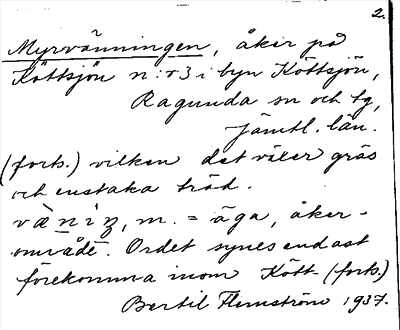 2.
Myrvänningen, åker på
Köttsjön n:r 3 i byn Köttsjön,
Ragunda sn och tg,
Jämtl. län.
(forts.) vilken det växer gräs
och enstaka träd.
m. = äga, åker-
område. Ordet synes endast
förekomma inom Kött- (forts.)
Bertil Flemström 1937.